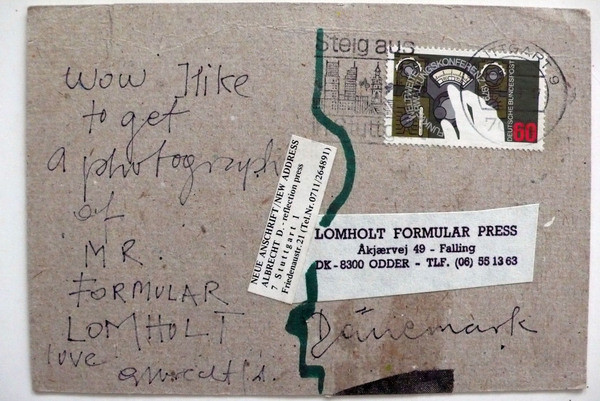 Wow I like
to get
a photograph
of
MR.
FORMULAR
LOMHOLT
love
albrecht/d.
Steig aus
NEUE ANSCHRIFT/NEW ADDRESS
ALBRECHT D. - reflection press
7 Stuttgart 1
Friedenaustr. 21 (Tel.Nr. 0711/264891)
DEUTSCHE BUNDESPOST
60
LOMHOLT FORMULAR PRESS
Åkjærvej 49 - Falling
DK-8300 ODDER - TLF. (06) 55 13 63
Dänemark